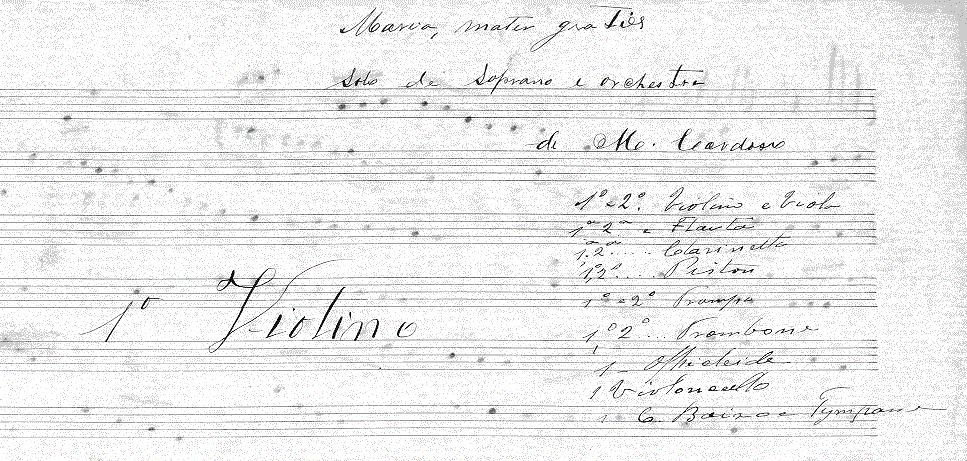 Maria, mater gratiæ
Solo de Soprano e orchestra
de M. Cardoso
1º e 2º. Violino e Viola
1ª 2ª e Flauta
1ª 2ª .... Clarinetta
1º 2º .... Piston
1º e 2º Trompa
1º Violino
1º 2º ... Trombone
1 - Ophicleide
1 Violoncello
1 C. Baixo e Tympano